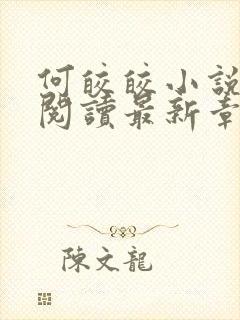 何皎皎小說
閱讀最新章
陳文龍